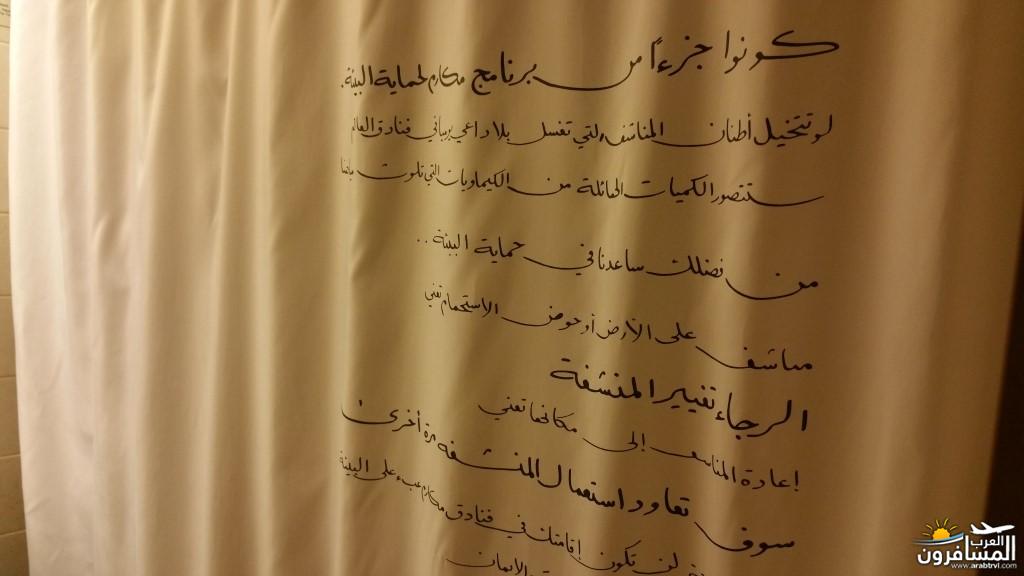 كونوا جزءاً من برنامج مكارم لحماية البيئة.
لو تتخيل أطنان المناشف التي تغسل بلا داعي يومياً في فنادق العالم
ستتصور الكميات الهائلة من الكيماويات التي تلوث
من فضلك ساعدنا في حماية البيئة ..
مناشف على الأرض أو حوض الاستحمام تعني
الرجاء تغيير المنشفة
إعادة المناشف إلى مكانها تعني
سوف تعاود استعمال المنشفة مرة أخرى
لن تكون إقامتك في فنادق مكارم عبء على البيئة
العرب
المسافرون
www.arabtrvl.com